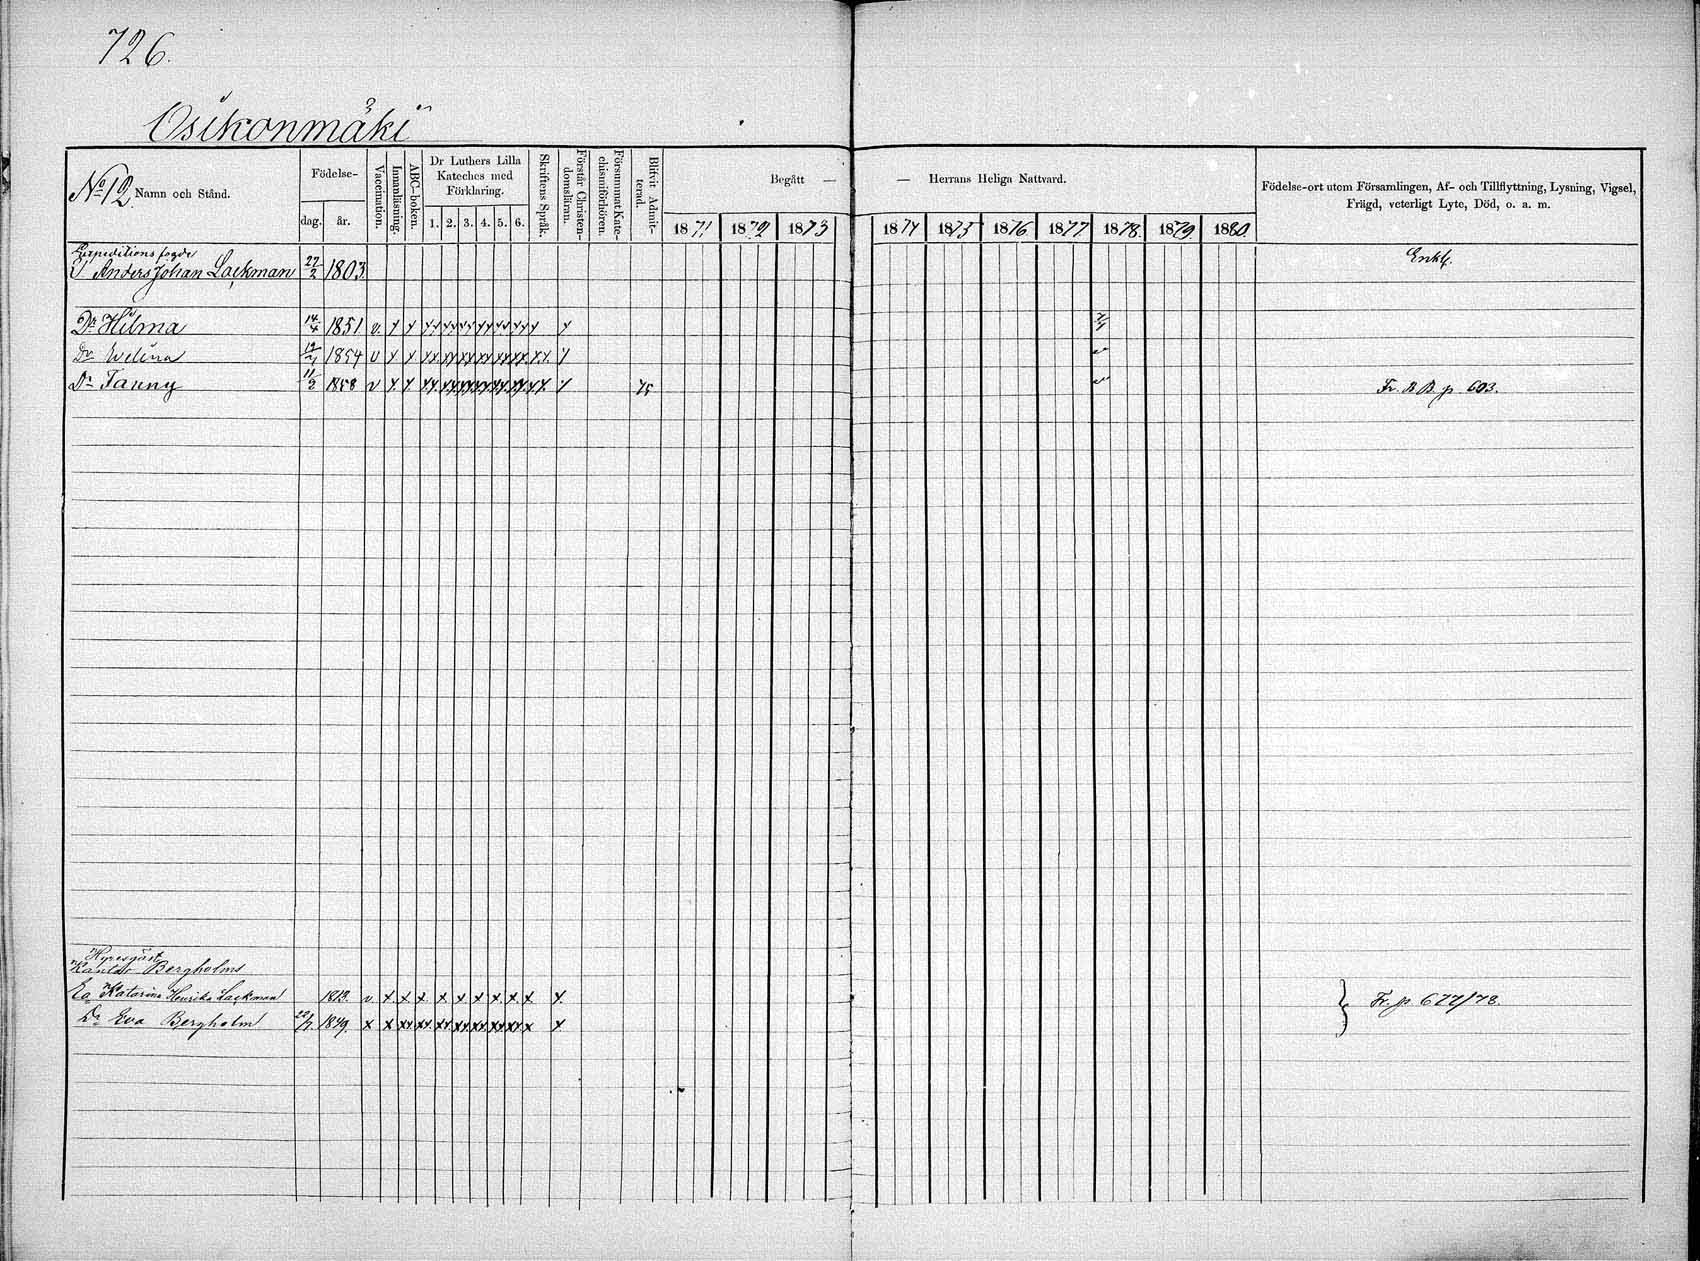 726.
Osikonmäki
No 12. Namn och Stånd.
Födelse-
dag. år.
Vaccination.
Innanläsning.
ABC-boken.
Dr Luthers Lilla
Kateches med
Förklaring.
1. 2. 3. 4. 5. 6.
Skriftens Språk.
Förstår Christen-
domsläran.
Försummat Kate-
chismiförhören.
Blifvit Admit-
terad.
Begått — — Herrans Heliga Nattvard.
1871. 1872 1873 1874 1875 1876 1877 1878. 1879. 1880.
Födelse-ort utom Församlingen, Af- och Tillflyttning, Lysning, Vigsel,
Frägd, veterligt Lyte, Död, o. a. m.
Expeditionsfogde
Anders Johan Lackman 27/2 1803. Enkl.
Dr Hilma 14/4 1851 v. x x
Dr Welina 1854 v x x
Dr Fanny 11/2 1858 v x x 75 Fr. B B p. 603.
Hyresgäst
Kantor Bergholms
Ea Katarina Henrika Lackman 1813. v. x x x x x x x x x x x. Fr. p 677/78.
Dr Eva Bergholm 1849. x x